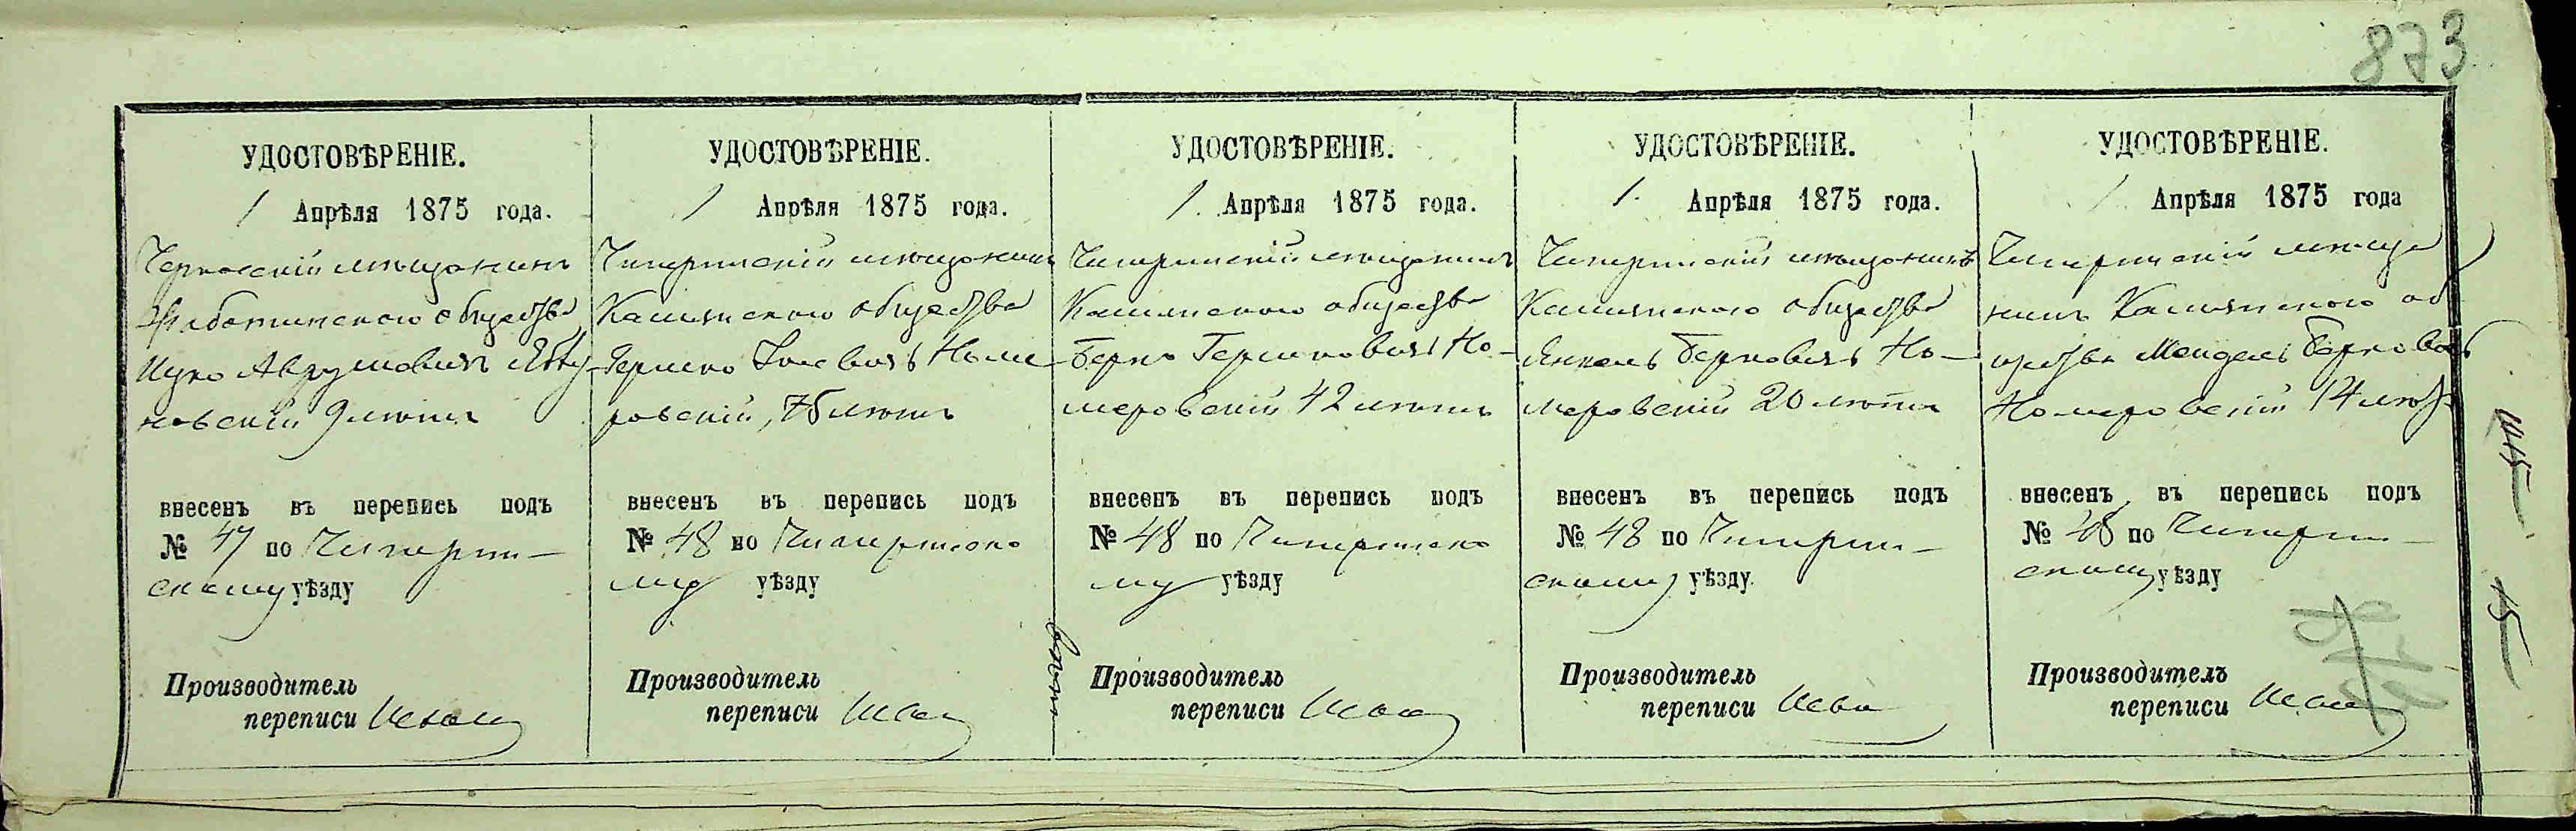 873
УДОСТОВѢРЕНІЕ.
1 Апрѣля 1875 года.
Черкасскій мѣщанинъ
общества
Ицко Аврумовичъ
новскій 9 лѣтъ
внесенъ въ перепись подъ
№ 47 по Чигирин-
скому уѣзду
Производитель
переписи
УДОСТОВѢРЕНІЕ.
1 Апрѣля 1875 года.
Чигиринскій мѣщанинъ
Каменскаго общества
Гершко Номе-
ровскій, 75 лѣтъ
внесенъ въ перепись подъ
№ 48 по Чигиринско
му уѣзду
Производитель
переписи
УДОСТОВѢРЕНІЕ.
1 Апрѣля 1875 года.
Чигиринскій мѣщанинъ
Каменскаго общества
Берко Гершковичъ Но-
меровскій 42 лѣтъ
внесенъ въ перепись подъ
№ 48 по Чигиринско
му уѣзду
Производитель
переписи
УДОСТОВѢРЕНІЕ.
1 Апрѣля 1875 года.
Чигиринскій мѣщанинъ
Каменскаго общества
Янкель Берковичъ Но-
меровскій 20 лѣтъ
внесенъ въ перепись подъ
№ 48 по Чигирин-
скому уѣзду
Производитель
переписи
УДОСТОВѢРЕНІЕ.
1 Апрѣля 1875 года
Чигиринскій мѣща
нинъ Каменскаго об
щества Мендель Берковичъ
Номеровскій 14 лѣтъ
внесенъ въ перепись подъ
№ 48 по Чигирин-
скому уѣзду
Производитель
переписи